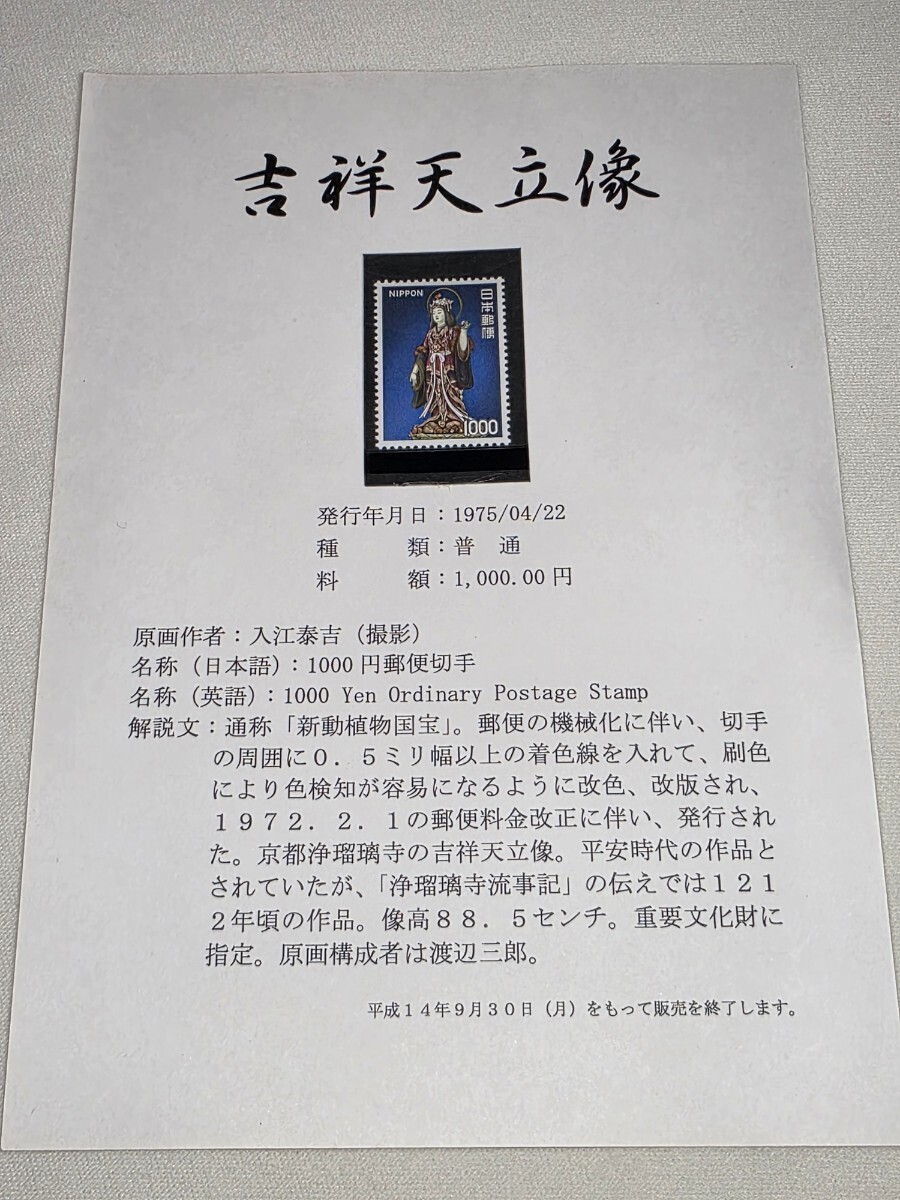 吉祥天立像
NIPPON
日本郵便
1000
発行年月日：1975/04/22
種　　　類：普　通
料　　　額：1,000.00円
原画作者：入江泰吉（撮影）
名称（日本語）：1000円郵便切手
名称（英語）：1000 Yen Ordinary Postage Stamp
解説文：通称「新動植物国宝」。郵便の機械化に伴い、切手
の周囲に０．５ミリ幅以上の着色線を入れて、刷色
により色検知が容易になるように改色、改版され、
１９７２．２．１の郵便料金改正に伴い、発行され
た。京都浄瑠璃寺の吉祥天立像。平安時代の作品と
されていたが、「浄瑠璃寺流事記」の伝えでは１２１
２年頃の作品。像高８８．５センチ。重要文化財に
指定。原画構成者は渡辺三郎。
平成１４年９月３０日（月）をもって販売を終了します。